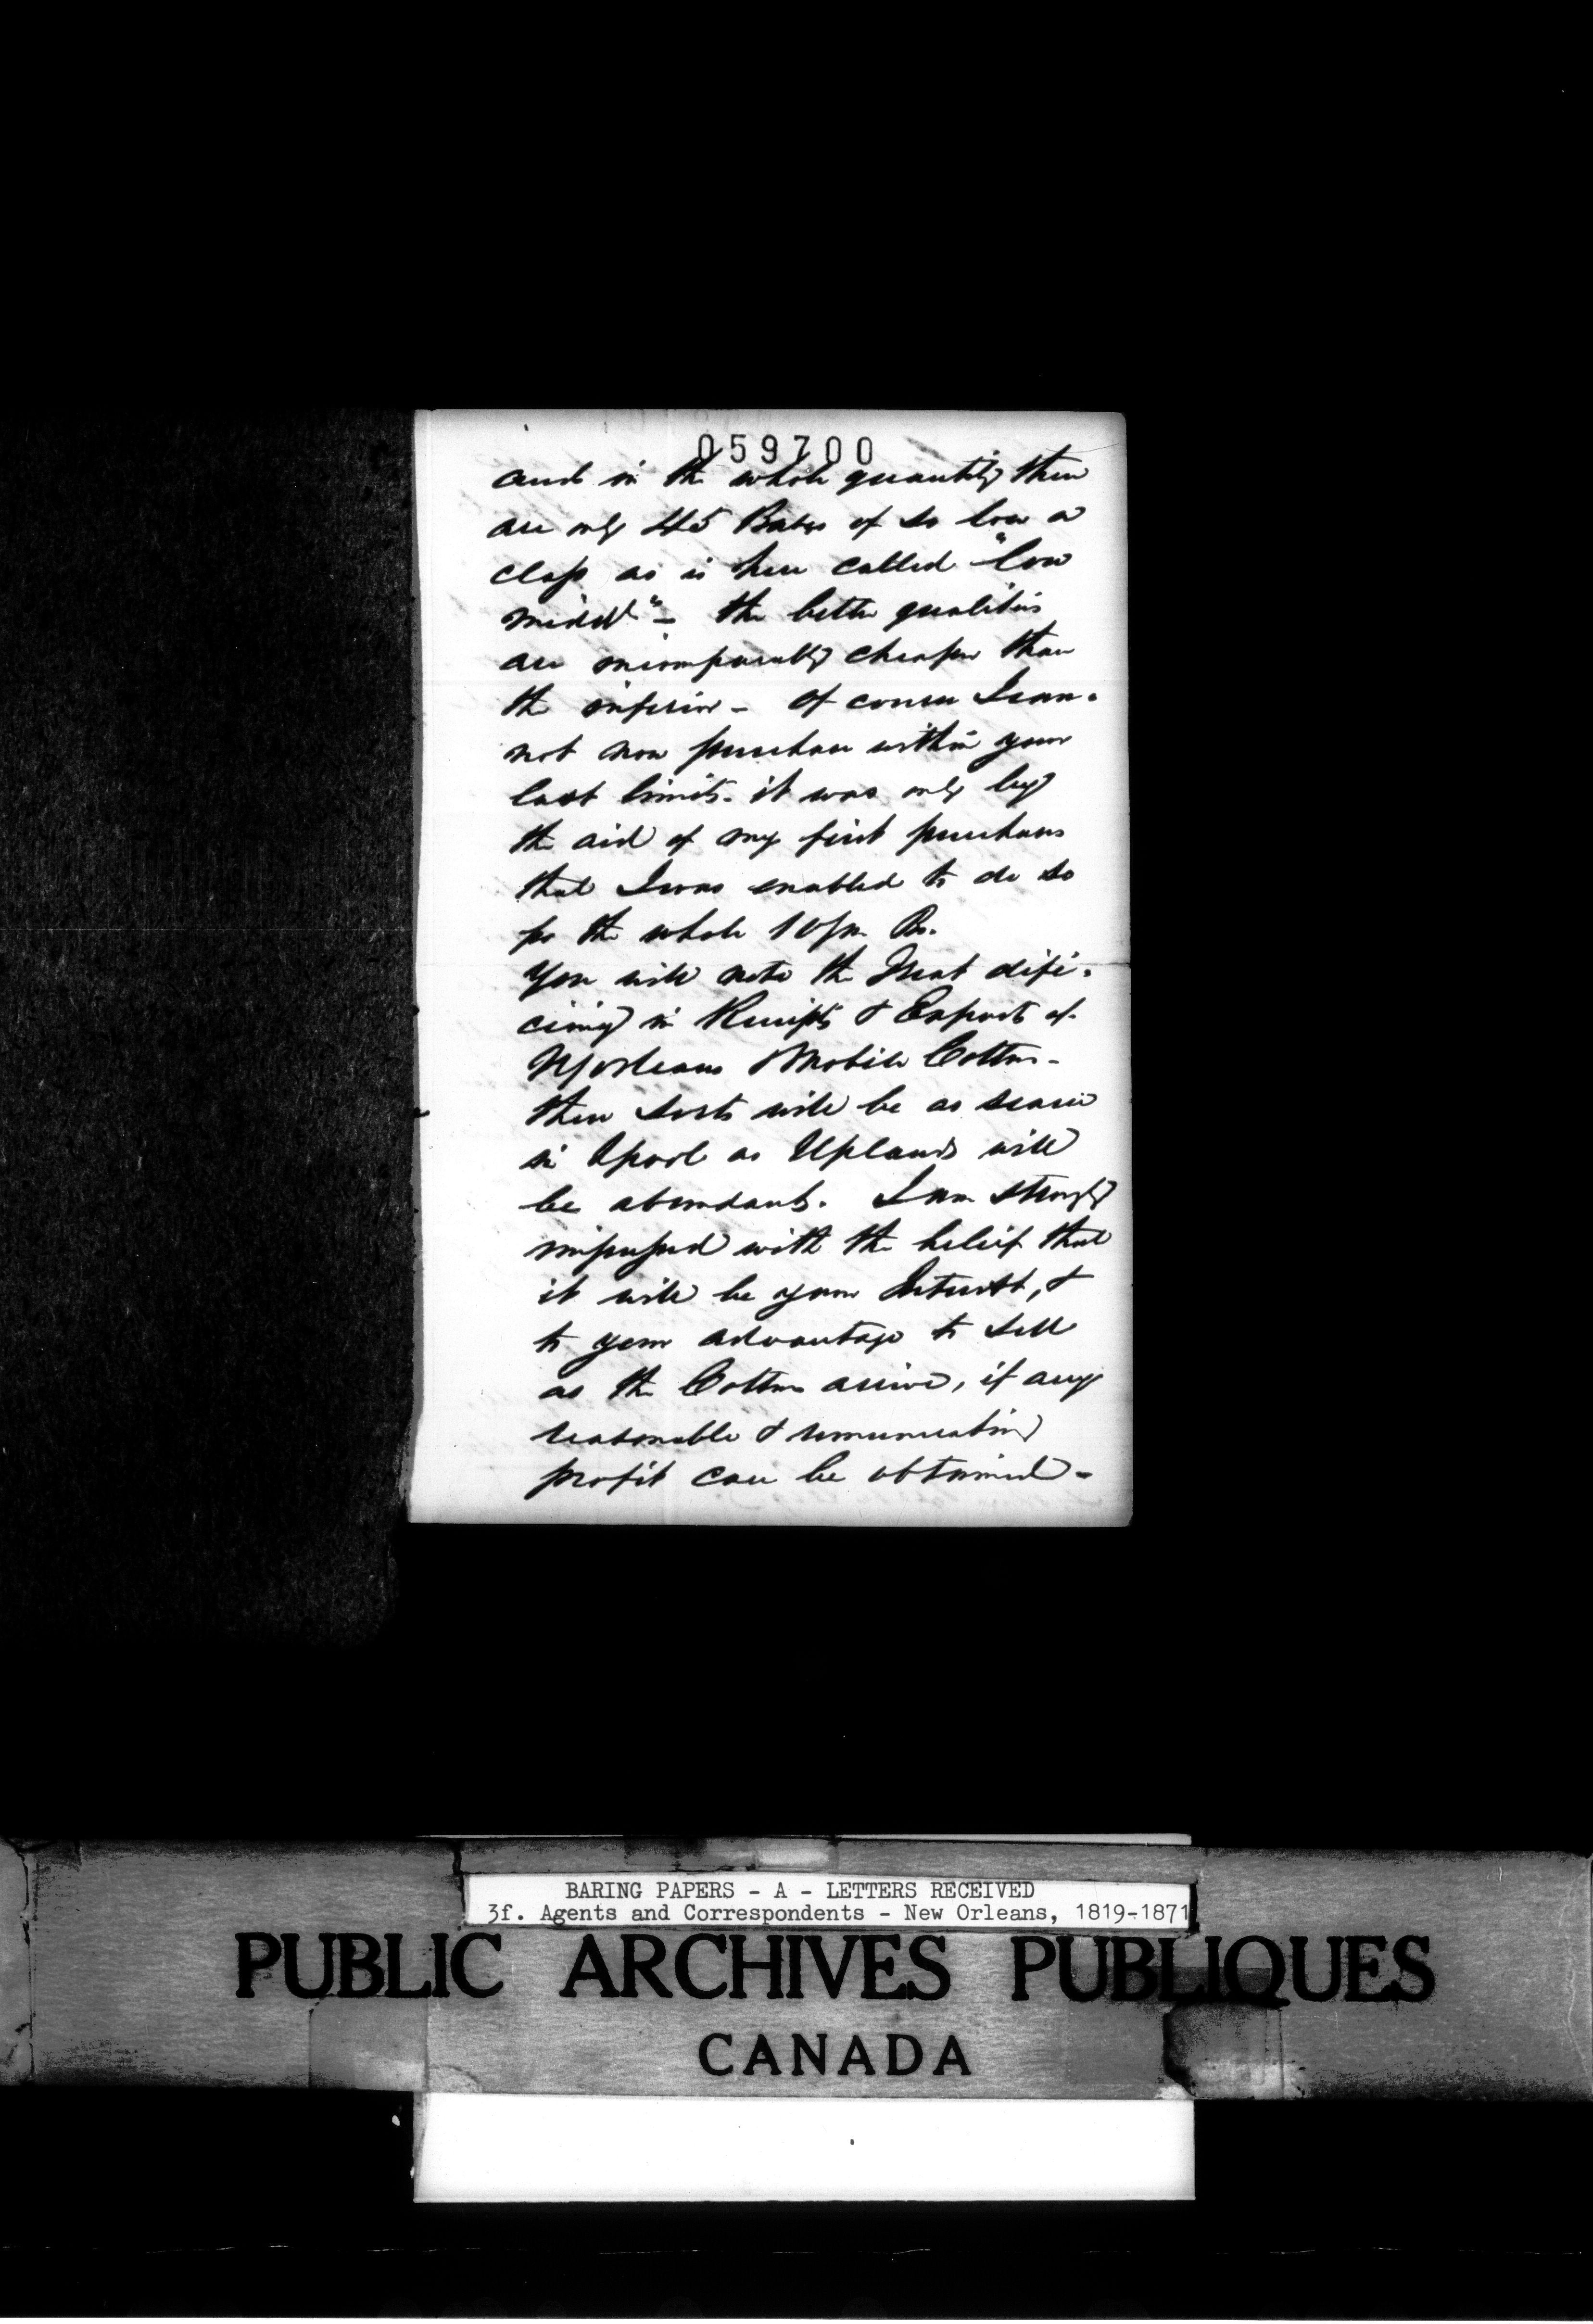 059700
and in the whole quantity there
are only 45 Bales of so low a
class as is here called "low
midd^l" - the better qualities
are incomparably cheaper than
the inferior - Of course I can-
not now purchase within your
last limits. it was only by
the aid of my first purchases
that I was enabled to do so
for the whole 10/m Bs.
You will note the Great defi-
ciency in Receipts & Exports of
NOrleans & Mobile Cotton -
these sorts will be as scarce
in Lpool as Uplands will
be abundant. I am strongly
impressed with the belief that
it will be your Interest, &
to your advantage to sell
as the Cotton arrives, if any
reasonable & remunerating
profit can be obtained -
BARING PAPERS - A - LETTERS RECEIVED
3f. Agents and Correspondents - New Orleans, 1819-1871
PUBLIC ARCHIVES PUBLIQUES
CANADA